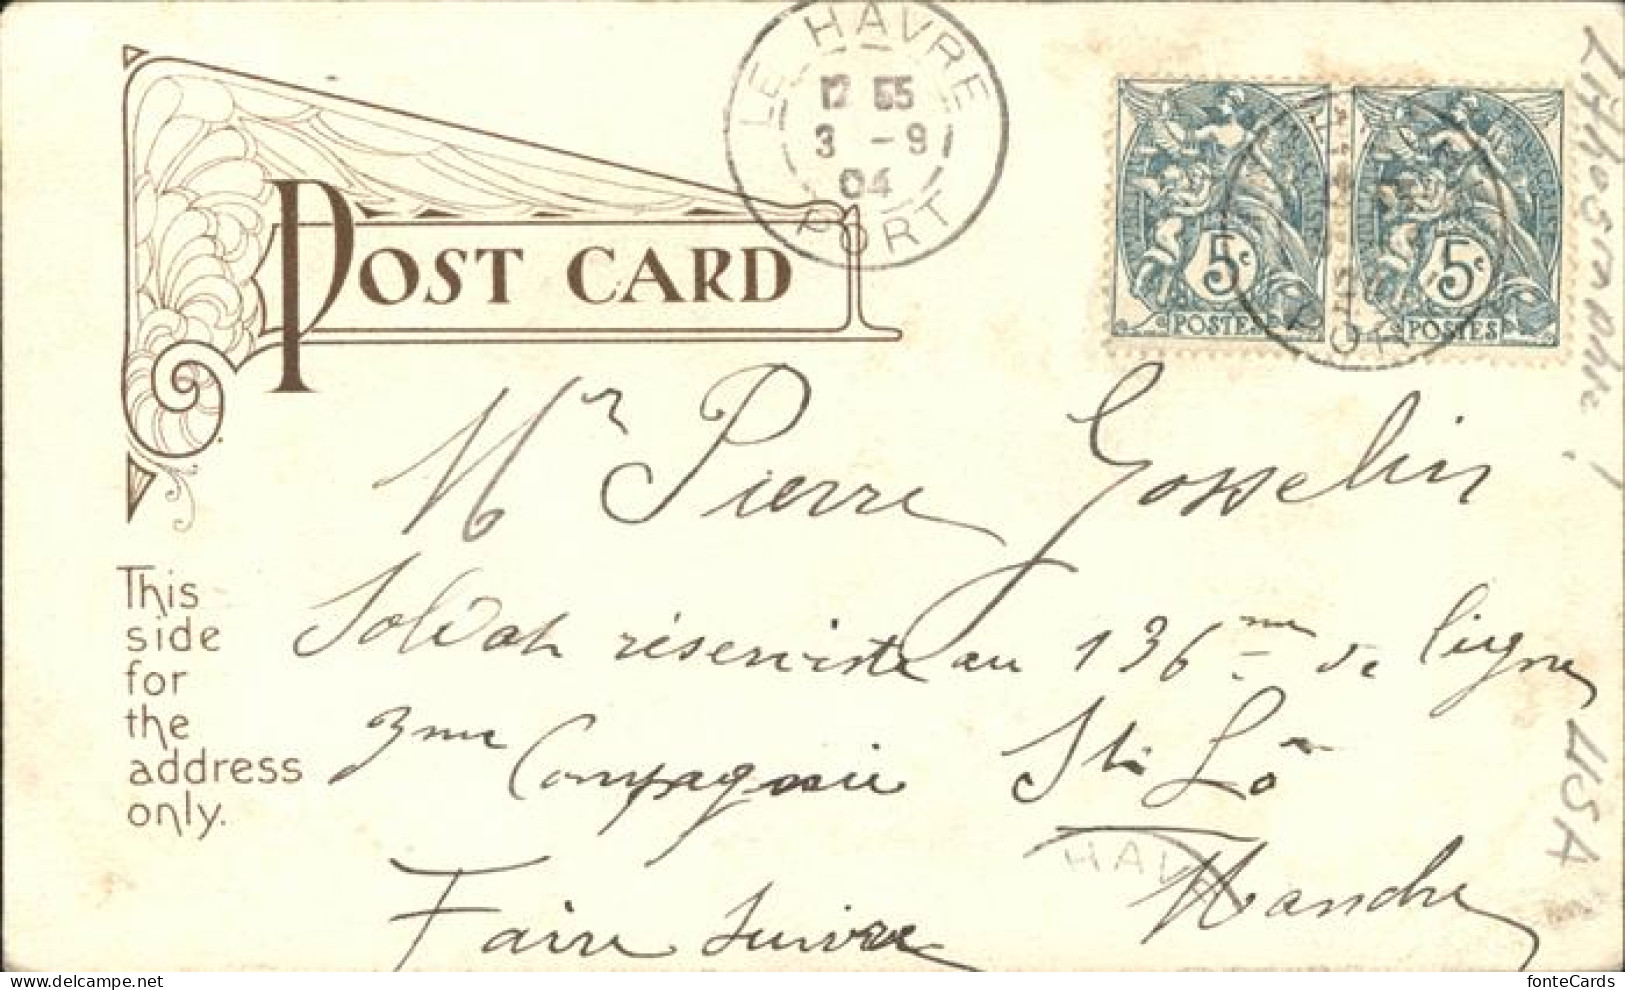 LE HAVRE
12 55
3 -9
04
PORT
POST CARD
5c
POSTES
5c
POSTES
This
side
for
the
address
only.
Mr Pierre Gosselin
Soldat réserviste au 136me de ligne
3me Compagnie St Lô
Manche
Faire suivre
HAV
Lithographie !
USA
fonteCards